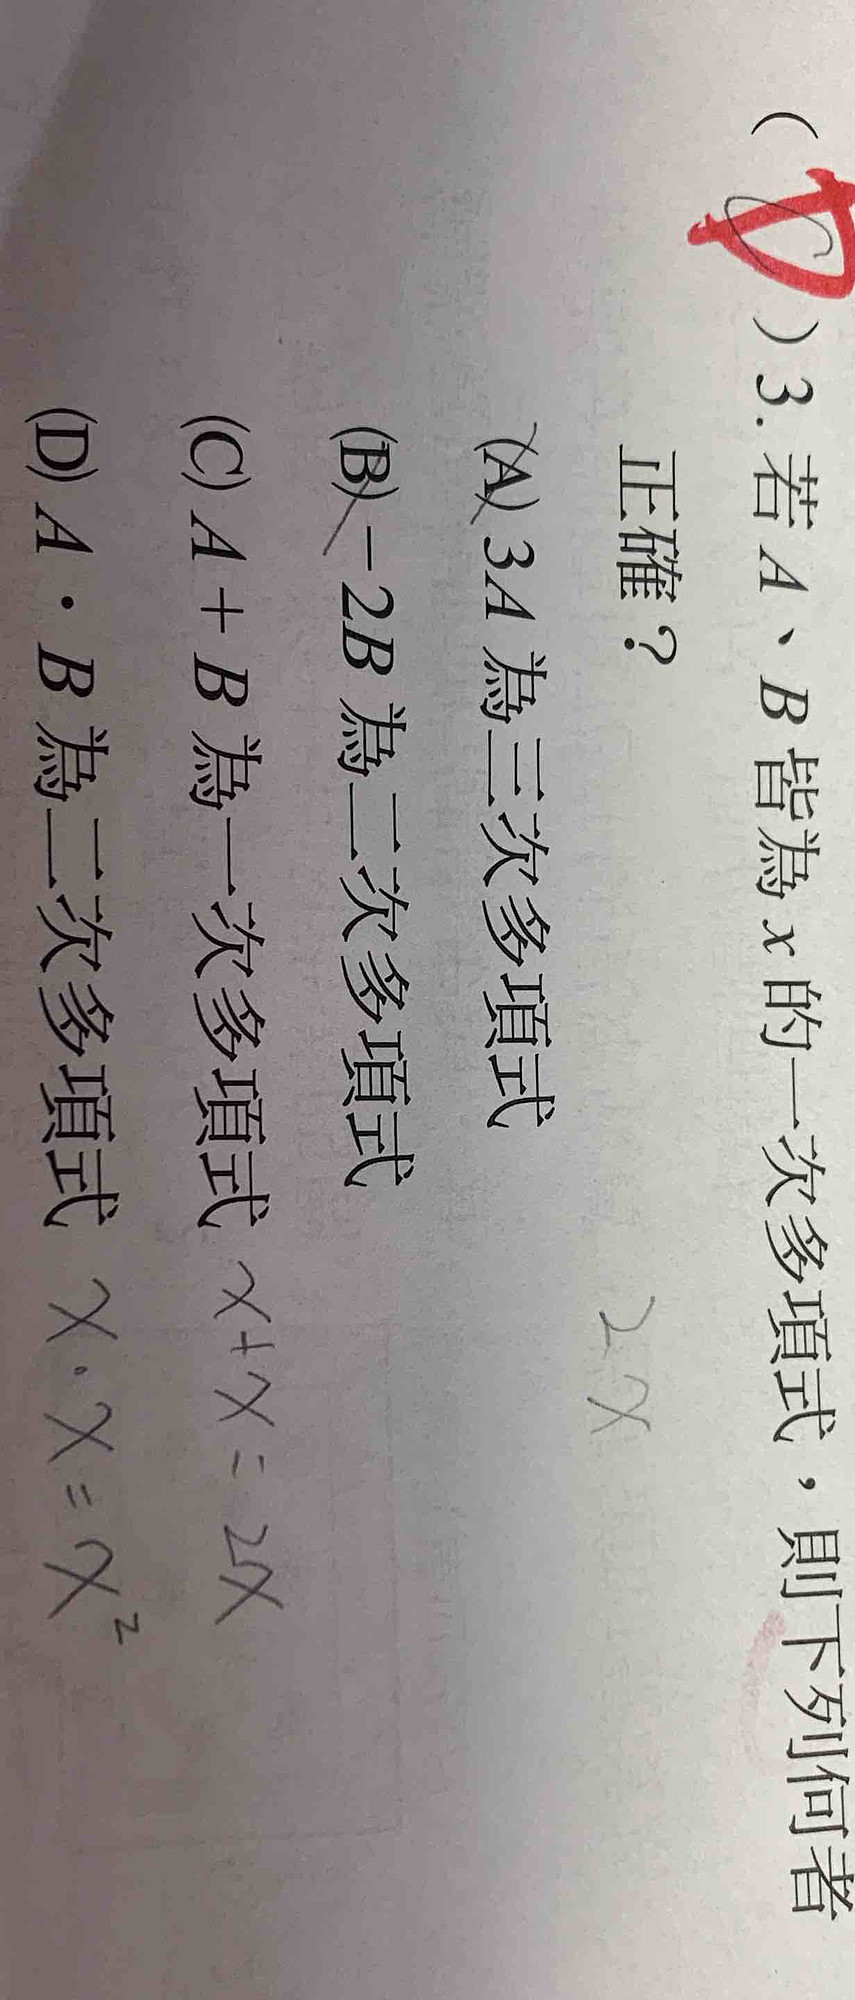 ( D ) 3. 若 A、B 皆為 x 的一次多項式，則下列何者
正確？
2x
(A) 3A 為三次多項式
(B) -2B 為二次多項式
(C) A + B 為一次多項式 x+x=2x
(D) A · B 為二次多項式 x·x=x²